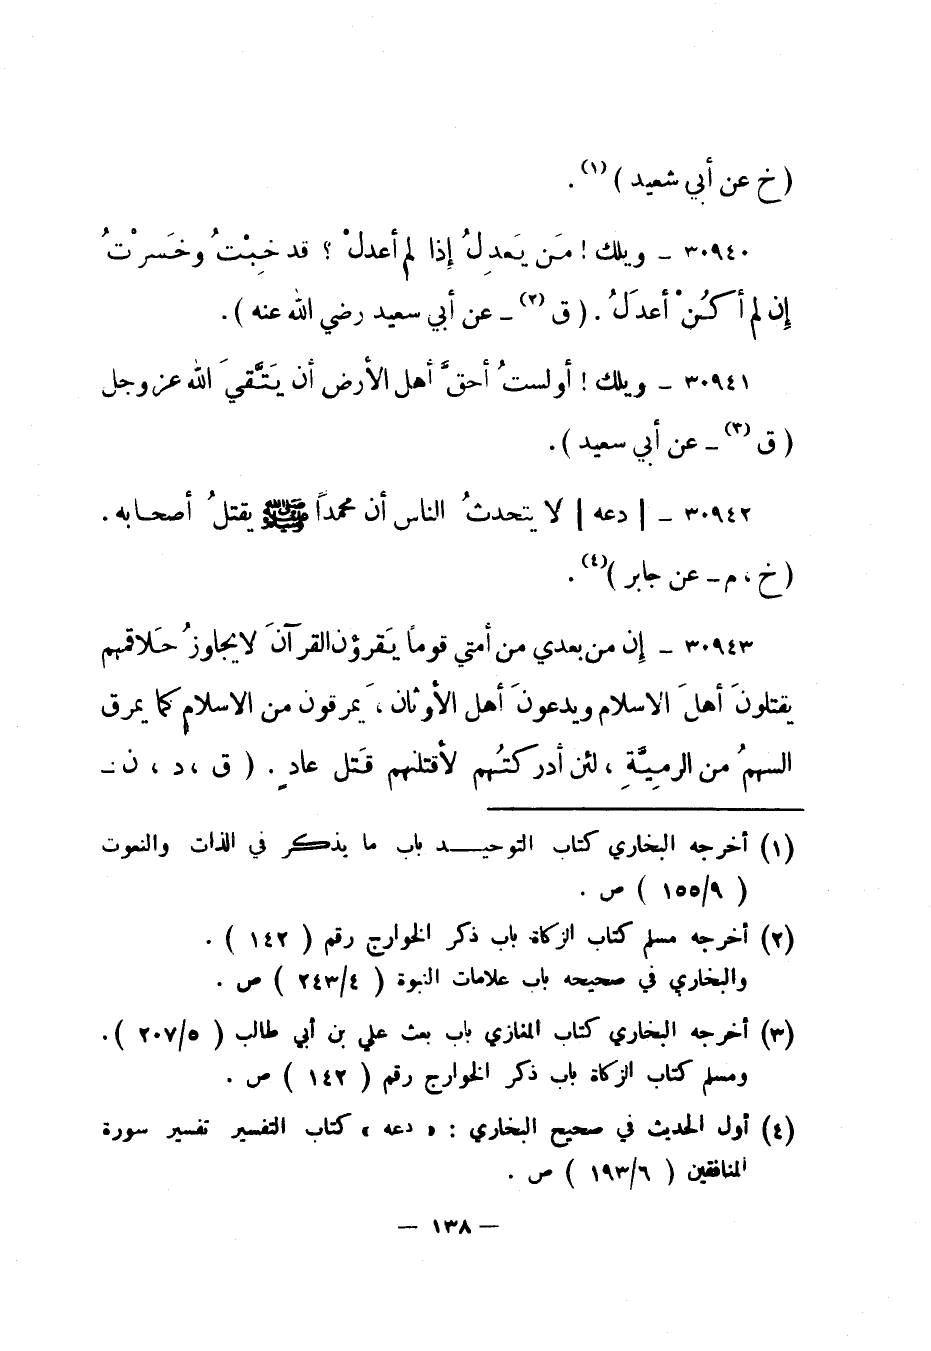 ( خ عن أبي شعيد )(١) .
٣٠٩٤٠ ــ ويلك ! مَن يَعدِلُ إذا لم أعدلْ ؟ قد خبِنْتُ وخَسرْتُ
إن لم أكُنْ أعدَلُ . ( ق (٢) ــ عن أبي سعيد رضي الله عنه ) .
٣٠٩٤١ ــ ويلك ! أولستُ أحقَّ أهل الأرض أن يَتَّقيَ الله عز وجل
( ق (٣) ــ عن أبي سعيد ) .
٣٠٩٤٢ ــ | دعه | لا يتحدثُ الناس أن محمداً ﷺ يقتلُ أصحابه .
( خ ، م ــ عن جابر )(٤) .
٣٠٩٤٣ ــ إن من بعدي من أمتي قوماً يَقرؤن القرآنَ لا يجاوزُ حلاقمهم
يقتلونَ أهلَ الاسلام ويدعونَ أهل الأوثان ، يَمرقون من الاسلام كما يمرق
السهمُ من الرمِيَّةِ ، لئن أدركتُهم لأقتلنهم قَتل عادٍ . ( ق ، د ، ن ــ
(١) أخرجه البخاري كتاب التوحيد باب ما يذكر في الذات والنعوت
( ١٥٥/٩ ) ص .
(٢) أخرجه مسلم كتاب الزكاة باب ذكر الخوارج رقم ( ١٤٢ ) .
والبخاري في صحيحه باب علامات النبوة ( ٢٤٣/٤ ) ص .
(٣) أخرجه البخاري كتاب المغازي باب بعث علي بن أبي طالب ( ٢٠٧/٥ ) .
ومسلم كتاب الزكاة باب ذكر الخوارج رقم ( ١٤٢ ) ص .
(٤) أول الحديث في صحيح البخاري : « دعه » كتاب التفسير تفسير سورة
المنافقين ( ١٩٣/٦ ) ص .
— ١٣٨ —